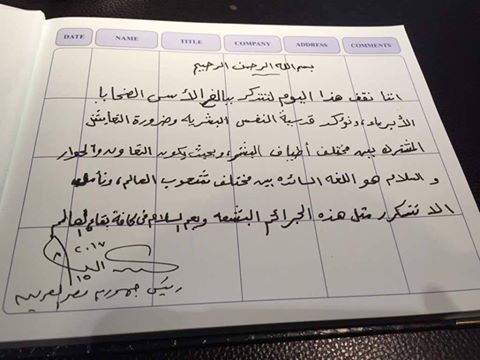 DATE NAME TITLE COMPANY ADDRESS COMMENTS
بسم الله الرحمن الرحيم
اننا نقف هذا اليوم لنتذكر ببالغ الأسى الضحايا
الأبرياء، ونؤكد قدسية النفس البشرية وضرورة التعايش
المشترك بين مختلف أطياف البشر، وبحيث يكون التعاون والحوار
والسلام هو اللغه السائده بين مختلف شعوب العالم، ونأمل
الا تتكرر مثل هذه الجرائم البشعه ويعم السلام في كافة بقاع العالم
٢٠١٧
رئيس جمهورية مصر العربية